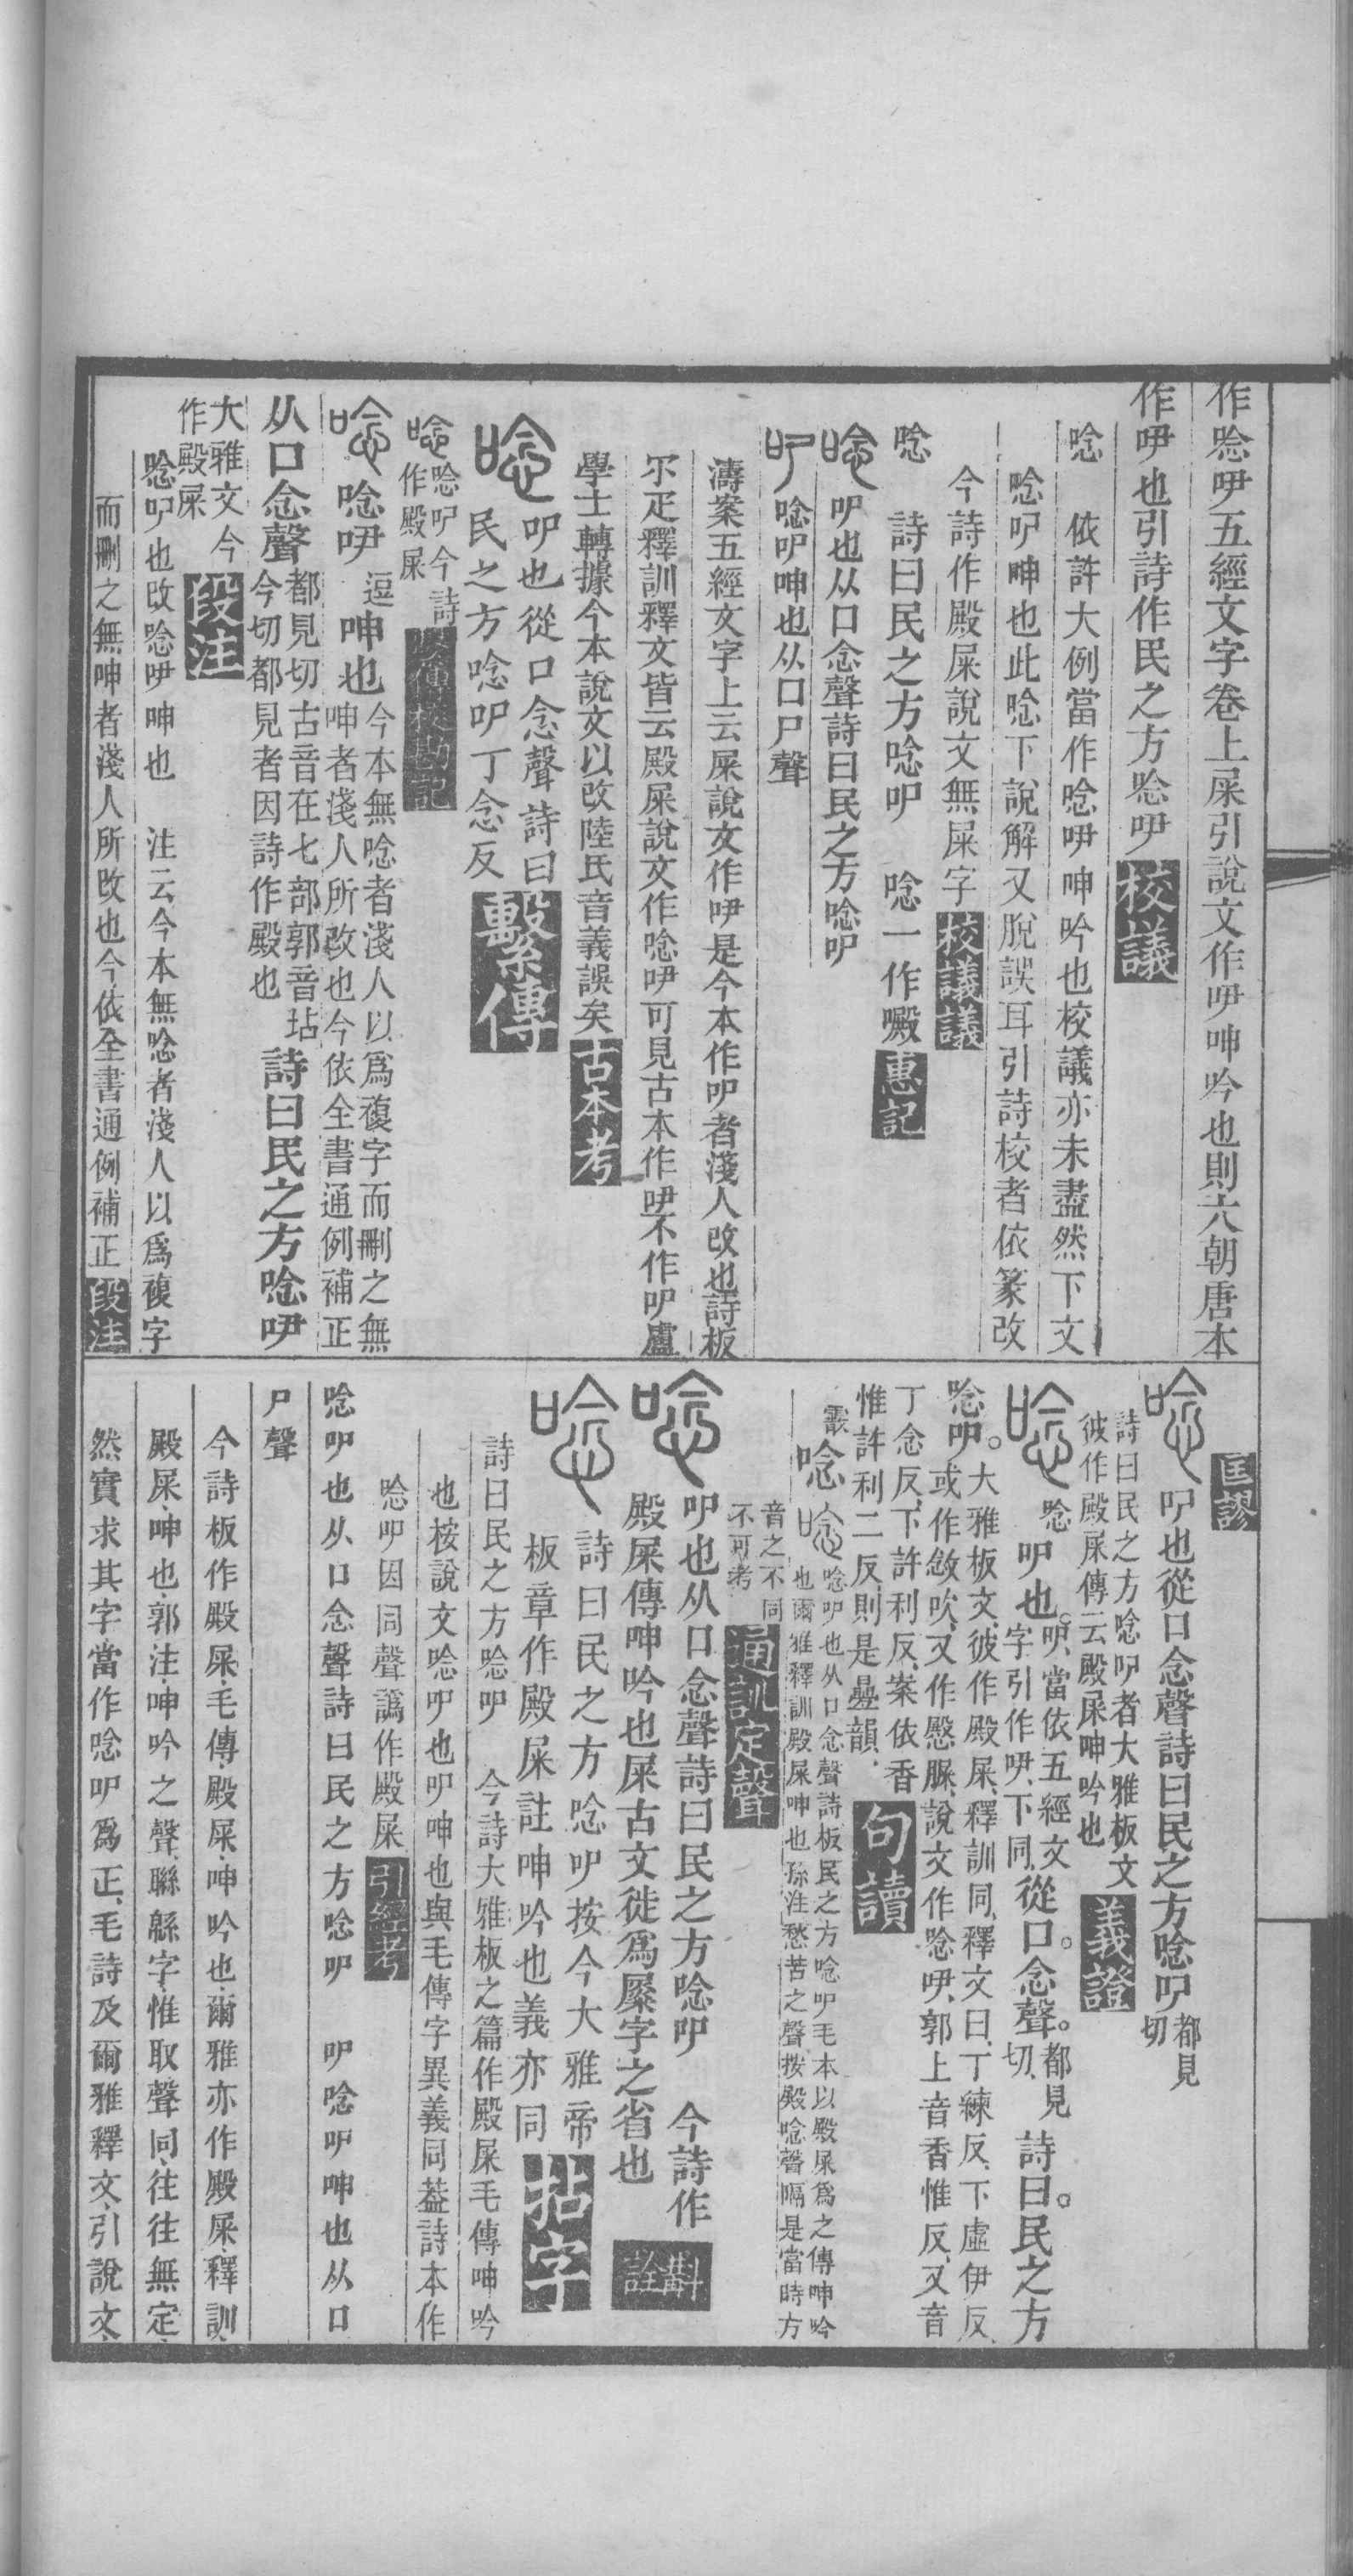 作唸吚五經文字卷上屎引說文作吚呻吟也則六朝唐本
作吚也引詩作民之方唸吚校議
唸　依許大例當作唸吚呻吟也校議亦未盡然下文
唸㕧呻也此唸下說解又脫誤耳引詩校者依篆改
今詩作殿屎說文無屎字校議議
唸　詩曰民之方唸㕧　唸一作㘙惠記
唸　㕧也从口念聲詩曰民之方唸㕧
㕧　唸㕧呻也从口尸聲
濤案五經文字上云屎說文作吚是今本作㕧者淺人改也詩板
爾疋釋訓釋文皆云殿屎說文作唸吚可見古本作吚不作㕧盧
學士轉據今本說文以改陸氏音義誤矣古本考
唸　㕧也從口念聲詩曰
民之方唸㕧丁念反繫傳
唸　唸㕧今詩
作殿屎　繫傳校勘記
唸　唸吚逗呻也今本無唸者淺人以爲複字而刪之無
呻者淺人所改也今依全書通例補正
从口念聲都見切古音在七部郭音坫
今切都見者因詩作殿也
詩曰民之方唸吚
大雅文今
作殿屎　段注
唸㕧也改唸吚呻也　注云今本無唸者淺人以爲複字
而刪之無呻者淺人所改也今依全書通例補正段注
匡謬
唸　㕧也從口念聲詩曰民之方唸㕧都見
切
詩曰民之方唸㕧者大雅板文
彼作殿屎傳云殿屎呻吟也　義證
唸　唸㕧也。㕧、當依五經文
字引作吚、下同、從口。念聲。都見
切、詩曰。民之方
唸㕧。大雅板文、彼作殿屎、釋訓同、釋文曰、丁練反、下虛伊反
或作敜吹、又作慇脲、說文作唸吚、郭上音香惟反、又音
丁念反、下許利反、案依香
惟許利二反、則是疊韻、　句讀
唸　唸㕧也从口念聲詩板民之方唸㕧毛本以殿屎爲之傳呻吟
也爾雅釋訓殿屎呻也孫注愁苦之聲按殿唸聲隔是當時方
音之不同
不可考　通訓定聲
唸　㕧也从口念聲詩曰民之方唸㕧　今詩作
殿屎傳呻吟也屎古文徙爲㞙字之省也　斠詮
唸　詩曰民之方唸㕧按今大雅帝
板章作殿屎註呻吟也義亦同拈字
詩曰民之方唸㕧　今詩大雅板之篇作殿屎毛傳呻吟
也桉說文唸㕧也㕧呻也與毛傳字異義同葢詩本作
唸㕧因同聲譌作殿屎引經考
唸㕧也从口念聲詩曰民之方唸㕧　㕧唸㕧呻也从口
尸聲
今詩板作殿屎、毛傳、殿屎、呻吟也、爾雅亦作殿屎、釋訓、
殿屎、呻也、郭注、呻吟之聲、聯緜字、惟取聲同、往往無定、
然實求其字當作唸㕧爲正、毛詩及爾雅釋文、引說文、